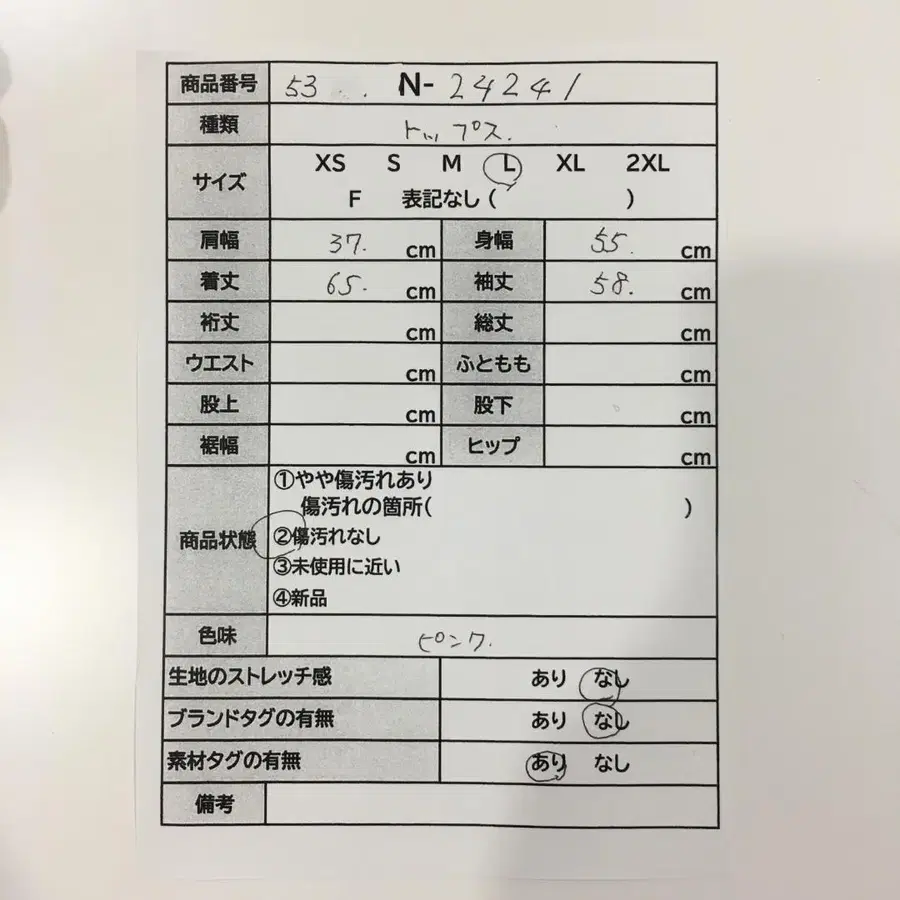 商品番号 53 . . N-24241
種類 トップス.
サイズ XS S M L XL 2XL
F 表記なし ( )
肩幅 37. cm 身幅 55. cm
着丈 65. cm 袖丈 58. cm
裄丈 cm 総丈 cm
ウエスト cm ふともも cm
股上 cm 股下 cm
裾幅 cm ヒップ cm
商品状態 ①やや傷汚れあり
傷汚れの箇所( )
②傷汚れなし
③未使用に近い
④新品
色味 ピンク.
生地のストレッチ感 あり なし
ブランドタグの有無 あり なし
素材タグの有無 あり なし
備考